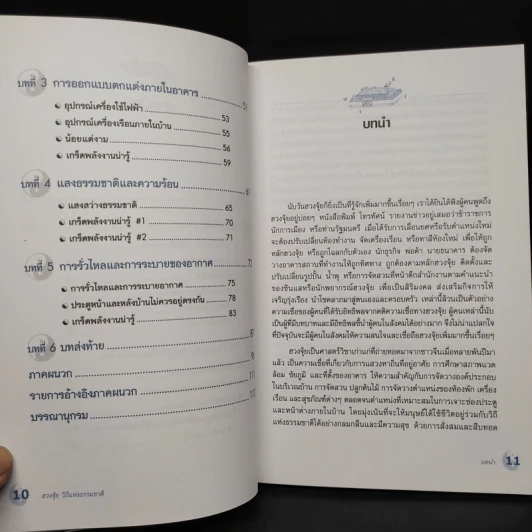 บทที่ 3 การออกแบบตกแต่งภายในอาคาร
• อุปกรณ์เครื่องใช้ไฟฟ้า 53
• อุปกรณ์เครื่องเรือนภายในบ้าน 55
• น้อยแต่งาม 56
• เกร็ดพลังงานน่ารู้ 59
บทที่ 4 แสงธรรมชาติและความร้อน
• แสงสว่างธรรมชาติ 65
• เกร็ดพลังงานน่ารู้ #1 70
• เกร็ดพลังงานน่ารู้ #2 71
บทที่ 5 การรั่วไหลและการระบายของอากาศ
• การรั่วไหลและการระบายอากาศ 75
• ประตูหน้าและหลังบ้านไม่ควรอยู่ตรงกัน 78
• เกร็ดพลังงานน่ารู้ 83
บทที่ 6 บทส่งท้าย
ภาคผนวก
รายการอ้างอิงภาคผนวก
บรรณานุกรม
10 ฮวงจุ้ย วิถีแห่งธรรมชาติ
บทนำ
นับวันฮวงจุ้ยก็ยิ่งเป็นที่รู้จักเพิ่มมากขึ้นเรื่อยๆ เราได้ยินได้ฟังผู้คนพูดถึง
ฮวงจุ้ยอยู่บ่อยๆ หนังสือพิมพ์ โทรทัศน์ รายงานข่าวอยู่เสมอว่าข้าราชการ
นักการเมือง หรือท่านรัฐมนตรี เมื่อได้รับการเลื่อนยศหรือรับตำแหน่งใหม่
จะต้องปรับเปลี่ยนห้องทำงาน จัดเครื่องเรือน หรือทาสีห้องใหม่ เพื่อให้ถูก
หลักฮวงจุ้ย หรือถูกโฉลกกับตัวเอง นักธุรกิจ พ่อค้า นายธนาคาร ต้องจัด
วางอาคารสถานที่ทำงานให้ถูกทิศทาง ถูกต้องตามหลักฮวงจุ้ย ติดตั้งและ
ปรับเปลี่ยนรูปปั้น น้ำพุ หรือการจัดสวนที่หน้าตึกสำนักงานตามคำแนะนำ
ของซินแสหรือนักพยากรณ์ฮวงจุ้ย เพื่อเป็นสิริมงคล ส่งเสริมกิจการให้
เจริญรุ่งเรือง นำโชคลาภมาสู่ตนเองและครอบครัว เหล่านี้ล้วนเป็นตัวอย่าง
ความเชื่อของผู้คนที่ได้รับอิทธิพลจากคติความเชื่อทางฮวงจุ้ย ผู้คนเหล่านี้นับ
เป็นผู้ที่มีบทบาทและมีอิทธิพลชี้นำผู้คนในสังคมได้อย่างมาก จึงไม่น่าแปลกใจ
ที่ปัจจุบันจะมีผู้คนในสังคมให้ความสนใจและเชื่อถือฮวงจุ้ยเพิ่มมากขึ้นเรื่อยๆ
ฮวงจุ้ยเป็นศาสตร์วิชาเก่าแก่ที่ถ่ายทอดมาจากชาวจีนเมื่อหลายพันปีมา
แล้ว เป็นความเชื่อที่เกี่ยวกับการแสวงหาถิ่นที่อยู่อาศัย การศึกษาสภาพแวด
ล้อม ชัยภูมิ และที่ตั้งของอาคาร ให้ความสำคัญกับการจัดวางองค์ประกอบ
ในบริเวณบ้าน การจัดสวน ปลูกต้นไม้ การจัดวางตำแหน่งของห้องพัก เครื่อง
เรือน และสุขภัณฑ์ต่างๆ ตลอดจนตำแหน่งที่เหมาะสมในการเจาะช่องประตู
และหน้าต่างภายในบ้าน โดยมุ่งเน้นที่จะให้มนุษย์ได้ใช้ชีวิตอยู่ร่วมกับวิถี
แห่งธรรมชาติได้อย่างกลมกลืนและมีความสุข ด้วยการสั่งสมและสืบทอด
บทนำ 11